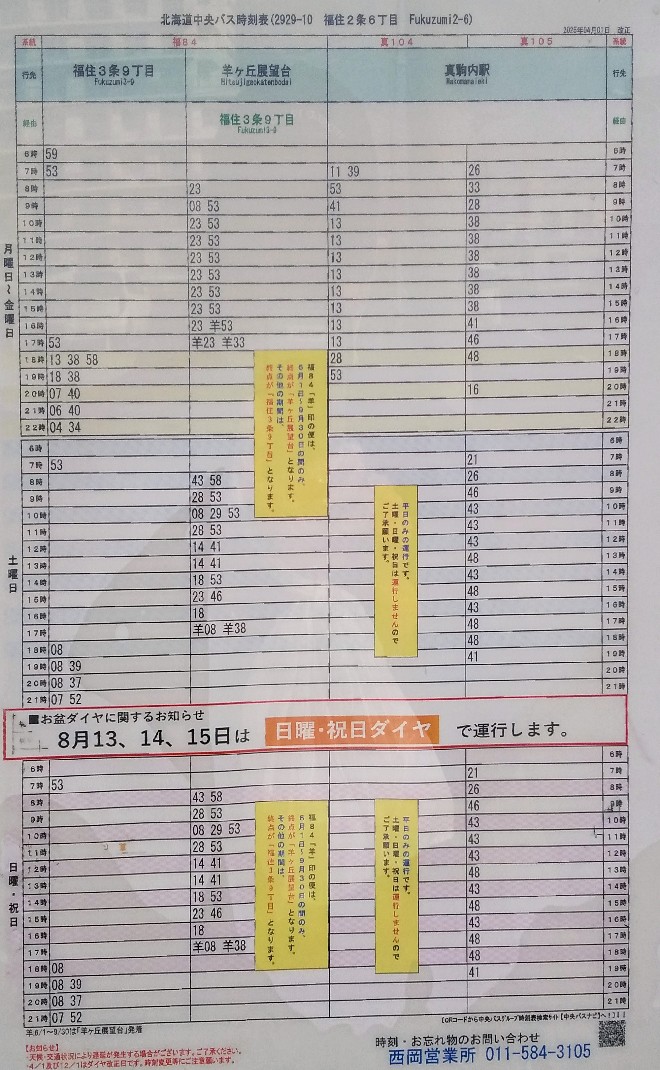 北海道中央バス時刻表(2929-10 福住2条6丁目 Fukuzumi2-6)
2025年04月01日 改正
系統 福84 真104 真105 系統
行先 福住3条9丁目 羊ヶ丘展望台 真駒内駅 行先
Fukuzumi3-9 Hitsujigaokatenbodai Makomanaieki
経由 福住3条9丁目 経由
Fukuzumi3-9
月曜日~金曜日
6時 59 6時
7時 53 11 39 26 7時
8時 23 53 33 8時
9時 08 53 41 28 9時
10時 23 53 13 38 10時
11時 23 53 13 38 11時
12時 23 53 13 38 12時
13時 23 53 13 38 13時
14時 23 53 13 38 14時
15時 23 53 13 38 15時
16時 23 羊53 13 41 16時
17時 53 羊23 羊33 13 46 17時
18時 13 38 58 28 48 18時
19時 18 38 53 19時
20時 07 40 16 20時
21時 06 40 21時
22時 04 34 22時
福84「羊」印の便は、
6月1日~9月30日の間のみ、
終点が「羊ヶ丘展望台」となります。
その他の期間は、
終点が「福住3条9丁目」となります。
土曜日
6時 6時
7時 53 21 7時
8時 43 58 26 8時
9時 28 53 46 9時
10時 08 29 53 43 10時
11時 28 53 43 11時
12時 14 41 43 12時
13時 14 41 48 13時
14時 18 53 43 14時
15時 23 46 48 15時
16時 18 43 16時
17時 羊08 羊38 48 17時
18時 08 48 18時
19時 08 39 41 19時
20時 08 37 20時
21時 07 52 21時
平日のみの運行です。
土曜・日曜・祝日は運行しませんので
ご了承願います。
■お盆ダイヤに関するお知らせ
8月13、14、15日は 日曜・祝日ダイヤ で運行します。
日曜・祝日
6時 6時
7時 53 21 7時
8時 43 58 26 8時
9時 28 53 46 9時
10時 08 29 53 43 10時
11時 28 53 43 11時
12時 14 41 43 12時
13時 14 41 48 13時
14時 18 53 43 14時
15時 23 46 48 15時
16時 18 43 16時
17時 羊08 羊38 48 17時
18時 08 48 18時
19時 08 39 41 19時
20時 08 37 20時
21時 07 52 21時
福84「羊」印の便は、
6月1日~9月30日の間のみ、
終点が「羊ヶ丘展望台」となります。
その他の期間は、
終点が「福住3条9丁目」となります。
平日のみの運行です。
土曜・日曜・祝日は運行しませんので
ご了承願います。
羊:6/1~9/30は「羊ヶ丘展望台」発着
【QRコードから中央バスグループ時刻表検索サイト【中央バスナビ】へ!】↓↓↓
【お知らせ】
・天候・交通状況により遅延が発生する場合がございます。ご了承ください。
・4/1及び12/1はダイヤ改正日です。時刻変更等にご注意願います。
時刻・お忘れ物のお問い合わせ
西岡営業所 011-584-3105